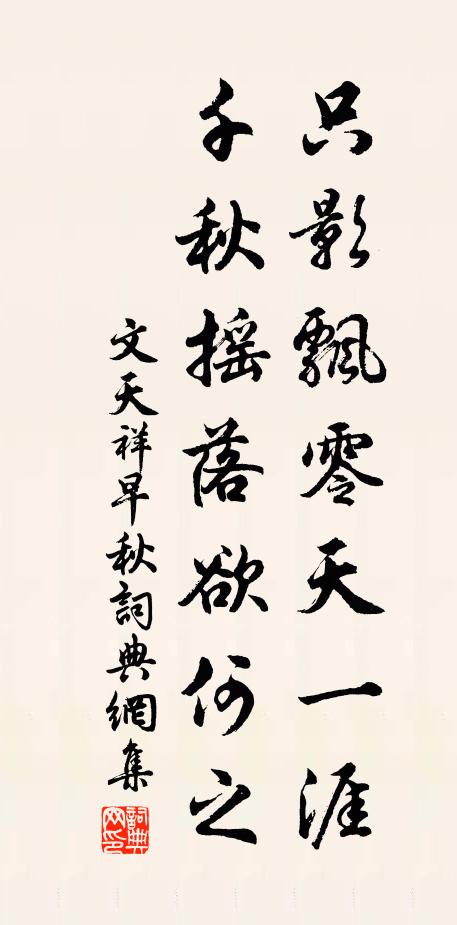 只影飄零天一涯
千秋摇落欲何之
文天祥早秋詞典網集
詞典網印